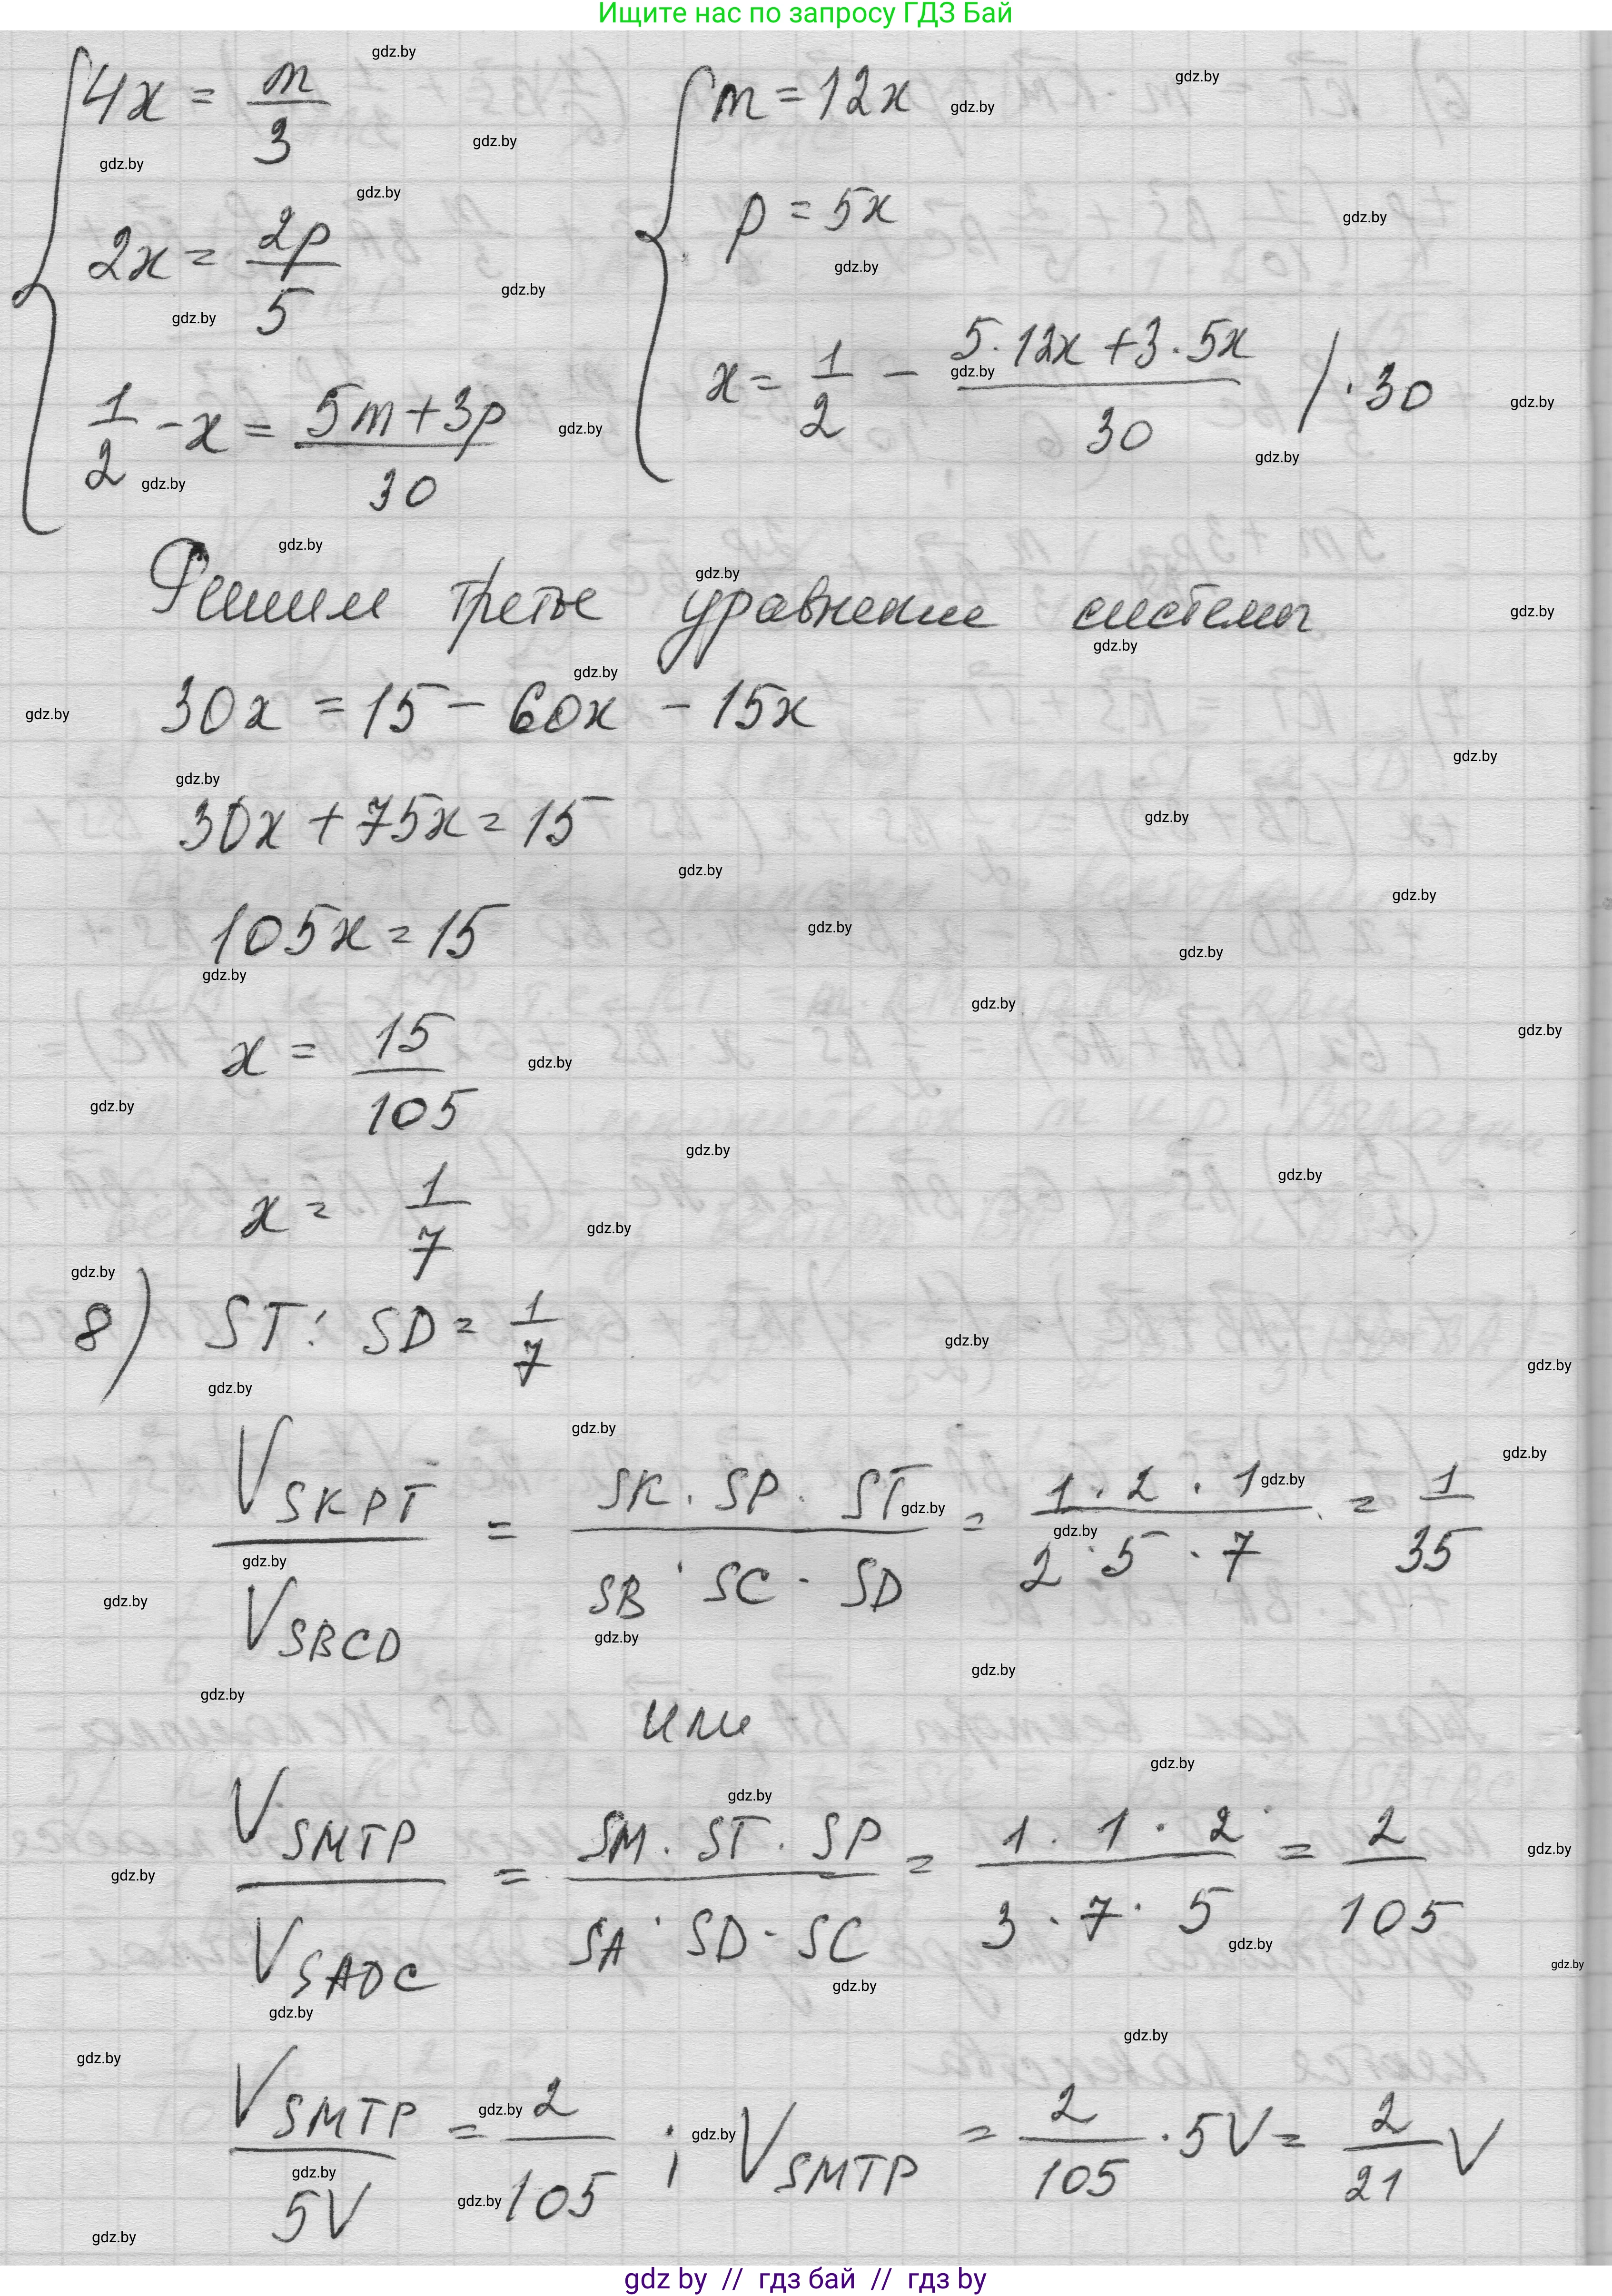 Ищите нас по запросу ГДЗ Бай
4x = m/3
2x = 2p/5
1/2 - x = (5m+3p)/30
m = 12x
p = 5x
x = 1/2 - (5·12x + 3·5x)/30 /·30
Решим третье уравнение системы
30x = 15 - 60x - 15x
30x + 75x = 15
105x = 15
x = 15/105
x = 1/7
8) ST : SD = 1/7
V SKPT / V SBCD = (SK · SP · ST)/(SB · SC · SD) = (1·2·1)/(2·5·7) = 1/35
или
V SMTP / V SADC = (SM · ST · SP)/(SA · SD · SC) = (1·1·2)/(3·7·5) = 2/105
V SMTP / 5V = 2/105 ; V SMTP = 2/105 · 5V = 2/21 V
gdz by // гдз бай // гдз by